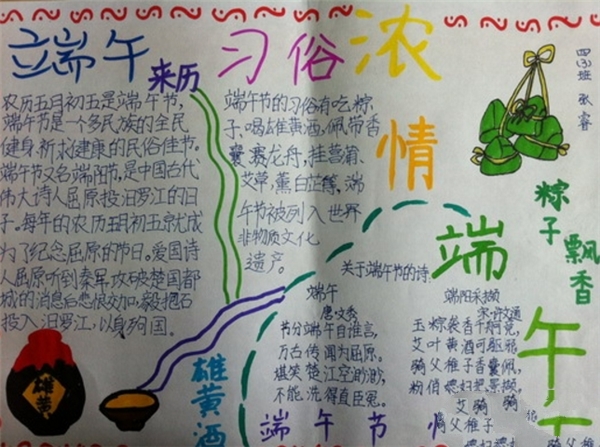 端午
来历
农历五月初五是端午节,
端午节是一个多民族的全民
健身,祈求健康的民俗佳节。
端午节又名端阳节,是中国古代
伟大诗人屈原投汨罗江的日
子。每年的农历五月初五就成
为了纪念屈原的节日。爱国诗
人屈原听到秦军攻破楚国都
城的消息后悲愤交加,毅抱石
投入汨罗江,以身殉国。
雄黄
雄黄酒
习俗浓
情
端午节的习俗有吃粽
子、喝雄黄酒,佩带香
囊、赛龙舟,挂菖蒲、
艾草,薰白芷等,端
午节被列入世界
非物质文化
遗产。
四(3)班
张睿
粽子飘香
端午
关于端午节的诗:
端午
唐·文秀
节分端午自谁言,
万古传闻为屈原。
堪笑楚江空渺渺,
不能洗得直臣冤。
端阳采撷
宋·许文通
玉粽袭香千舸竞,
艾叶黄酒可驱邪。
骑父稚子香囊佩,
粉俏媳妇把景撷。
端午节情